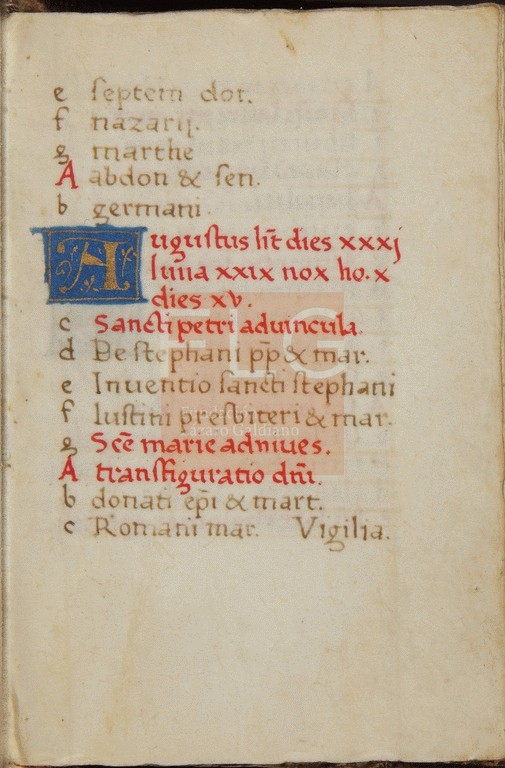 e septem dor.
f nazarij.
g marthe
A abdon & sen.
b germani.
Augustus ht̄ dies xxxj
luna xxix nox ho. x
dies xv.
c Sancti petri advincula.
d De stephani pp̄ & mar.
e Inventio sancti stephani
f Iustini presbiteri & mar.
g Scē marie adnives.
A transfiguratio dn̄i.
b donati ep̄i & mart.
c Romani mar. Vigilia.
FLG
Fundación
Lázaro Galdiano